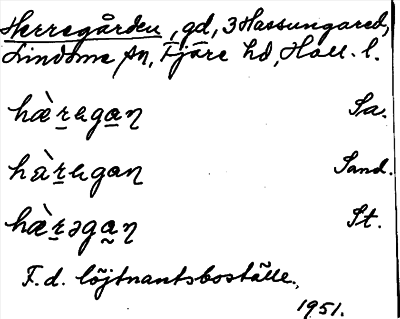 Herregården, gd, 3 Hassungared,
Lindome sn, Fjäre hd, Hall. l.
hæ̀r̲ega̲n Sa.
hàr̲egan Sand.
hæ̀r̲əga̰n St.
F.d. löjtnantsboställe.
1951.